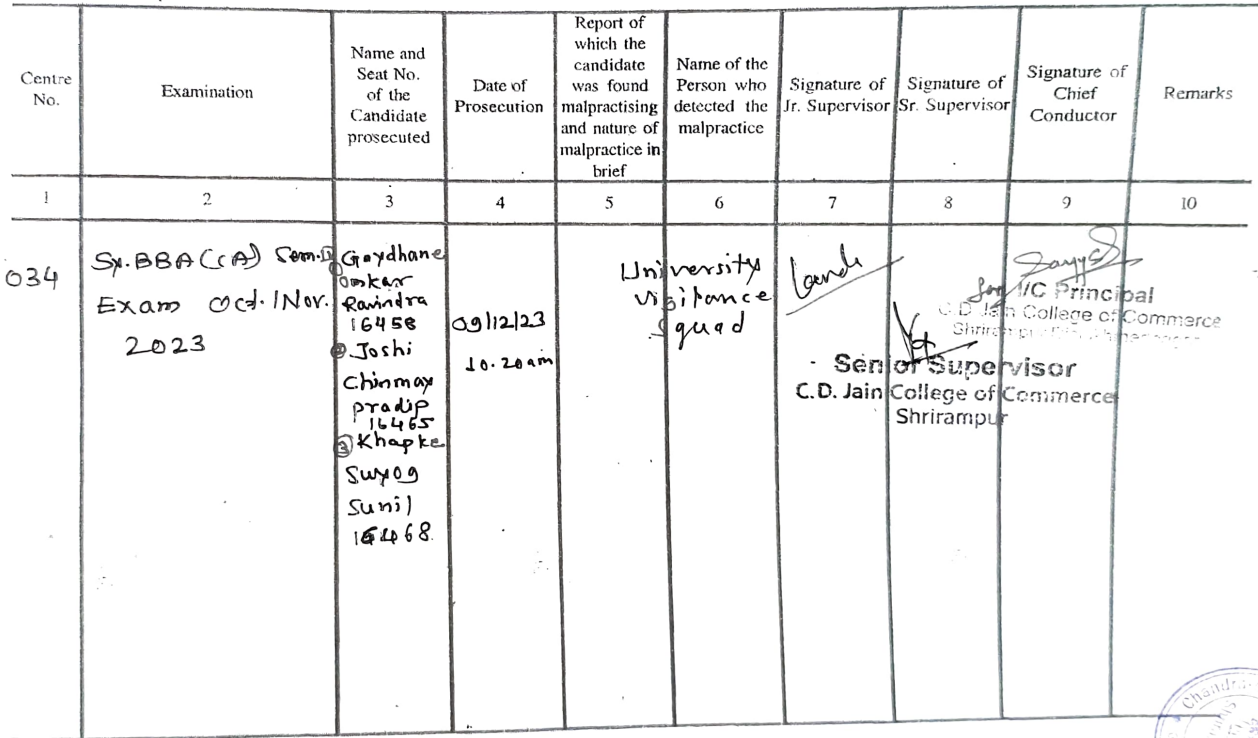 Centre
No.
Examination
Name and
Seat No.
of the
Candidate
prosecuted
Date of
Prosecution
Report of
which the
candidate
was found
malpractising
and nature of
malpractice in
brief
Name of the
Person who
detected the
malpractice
Signature of
Jr. Supervisor
Signature of
Sr. Supervisor
Signature of
Chief
Conductor
Remarks
1
2
3
4
5
6
7
8
9
10
034
Sy.BBA(CA) Sem.
Exam Oct./Nov.
2023
① Gaydhane
Omkar
Ravindra
16458
② Joshi
Chinmay
pradip
16465
③ Khapke
Suyog
Sunil
16468
09/12/23
10.20am
University
Vigilance
Squad
I/C Principal
C.D. Jain College of Commerce
Senior Supervisor
C.D. Jain College of Commerce
Shrirampur